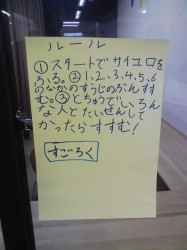 ルール
①スタートでサイコロを
ふる。②1、2、3、4、5、6
のなかのすうじのぶんすす
む。③とちゅうでいろん
な人とたいせんして
かったらすすむ!
すごろく